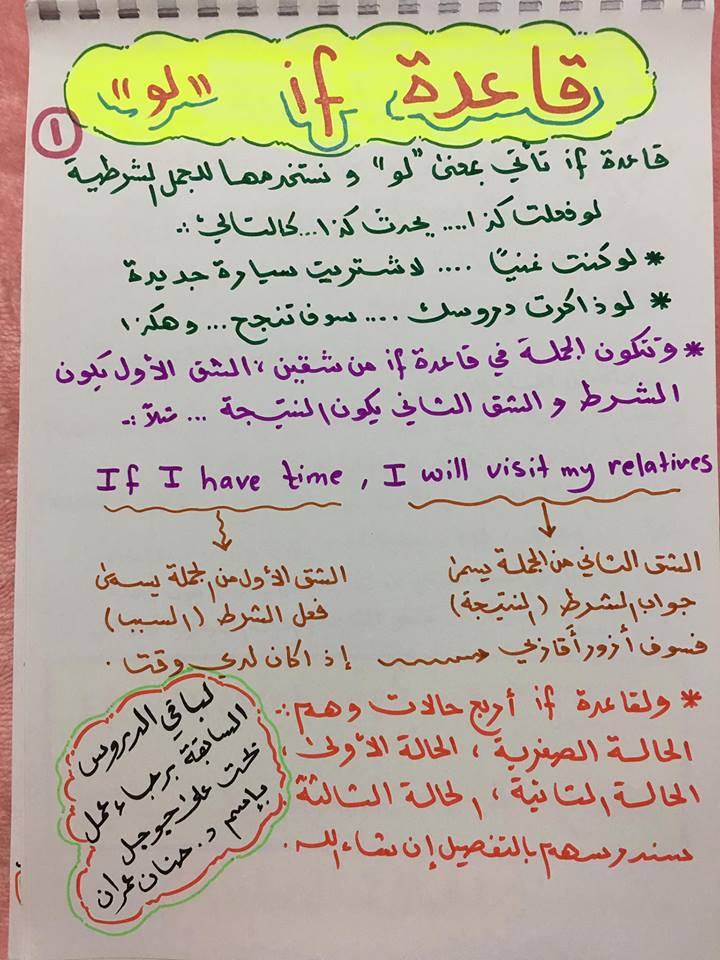 قاعدة if "لو"
1
قاعدة if تأتي بمعنى "لو" و نستخدمها للجمل الشرطية
لو فعلت كذا .... يحدث كذا... كالتالي :-
* لو كنت غنيًا .... لاشتريت سيارة جديدة
* لو ذاكرت دروسك .... سوف تنجح ... وهكذا
* وتتكون الجملة في قاعدة if من شقين ، الشق الأول يكون
الشرط و الشق الثاني يكون النتيجة ... مثلاً :-
If I have time , I will visit my relatives
الشق الأول من الجملة يسمى
فعل الشرط (السبب)
إذا كان لدي وقتا .
الشق الثاني من الجملة يسمى
جواب الشرط (النتيجة)
فسوف أزور أقاربي
* ولقاعدة if أربع حالات وهم :-
الحالة الصفرية ، الحالة الأولى ،
الحالة الثانية ، الحالة الثالثة
سندرسهم بالتفصيل إن شاء الله .
لباقي الدروس
السابقة برجاء عمل
بحث على جوجل
بإسم د. حنان عمران